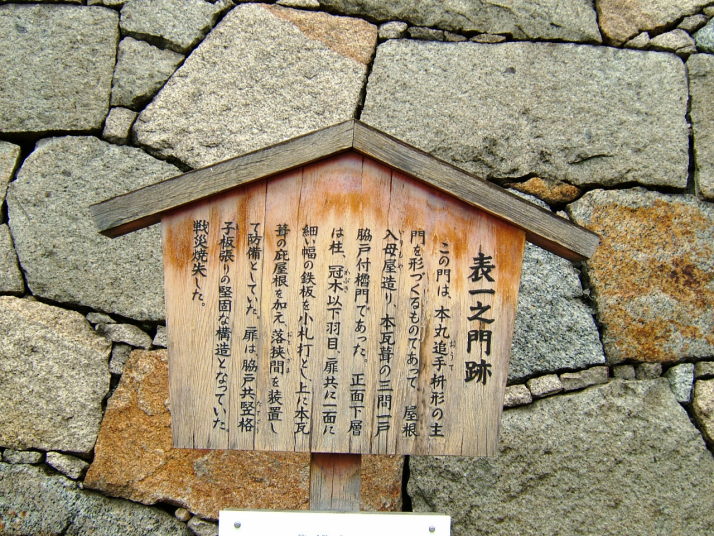 表一之門跡
この門は、本丸追手枡形の主
おうて
門を形づくるものてあって、屋根
入母屋造り、本瓦葺の三間一戸
いりもや
脇戸付櫓門であった。正面下層
は柱、冠木以下羽目、扉共に一面に
かぶき
細い幅の鉄板を小札打とし、上に本瓦
葺の庇屋根を加え、落挟間を装置し
おとしざま
て防備としていた。扉は、脇戸共竪格
たてご
子板張りの堅固な構造となっていた。
戦災焼失した。